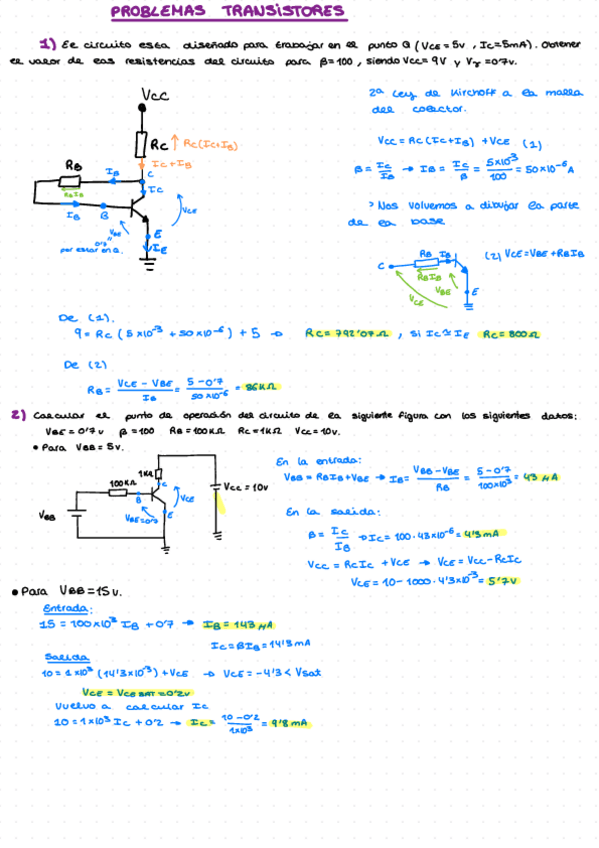 PROBLEMAS TRANSISTORES
1) El circuito esta diseñado para trabajar en el punto Q (VCE = 5v , IC = 5mA). Obtener
el valor de las resistencias del circuito para β=100 , siendo VCC = 9V y Vγ = 0'7v.
VCC
RC ↑ RC(IC+IB)
↓ IC+IB
RB
IB
C
IC
RB IB
IB
B
VCE
VBE
0'7
por estar en Q.
E
IE
2ª Ley de Kirchoff a la malla
del colector.
VCC = RC (IC+IB) + VCE (1)
β = IC/IB → IB = IC/β = 5x10^-3/100 = 50x10^-6 A
> Nos volvemos a dibujar la parte
de la base
C RB IB
RB IB
VBE
VCE
E
(2) VCE = VBE + RB IB
De (1).
9 = RC (5x10^-3 + 50x10^-6) + 5 → RC = 792'07Ω , si IC ≅ IE RC = 800Ω
De (2)
RB = VCE - VBE/IB = 5 - 0'7/50x10^-6 = 86KΩ
2) Calcular el punto de operación del circuito de la siguiente figura con los siguientes datos:
VBE = 0'7v β = 100 RB = 100KΩ RC = 1KΩ VCC = 10v.
• Para VBB = 5v.
1KΩ
100KΩ
C
B
VCE
VBE=0'7
E
VBB
VCC = 10v
En la entrada:
VBB = RB IB + VBE → IB = VBB - VBE/RB = 5 - 0'7/100x10^3 = 43 µA
En la salida:
β = IC/IB → IC = 100 · 43x10^-6 = 4'3mA
VCC = RC IC + VCE → VCE = VCC - RC IC
VCE = 10 - 1000 · 4'3x10^-3 = 5'7v
• Para VBB = 15v.
Entrada:
15 = 100x10^3 IB + 0'7 → IB = 143 µA
IC = β IB = 14'3mA
Salida
10 = 1x10^3 (14'3x10^-3) + VCE → VCE = -4'3 < Vsat
VCE = VCE SAT = 0'2v
Vuelvo a calcular IC
10 = 1x10^3 IC + 0'2 → IC = 10 - 0'2/1x10^3 = 9'8mA